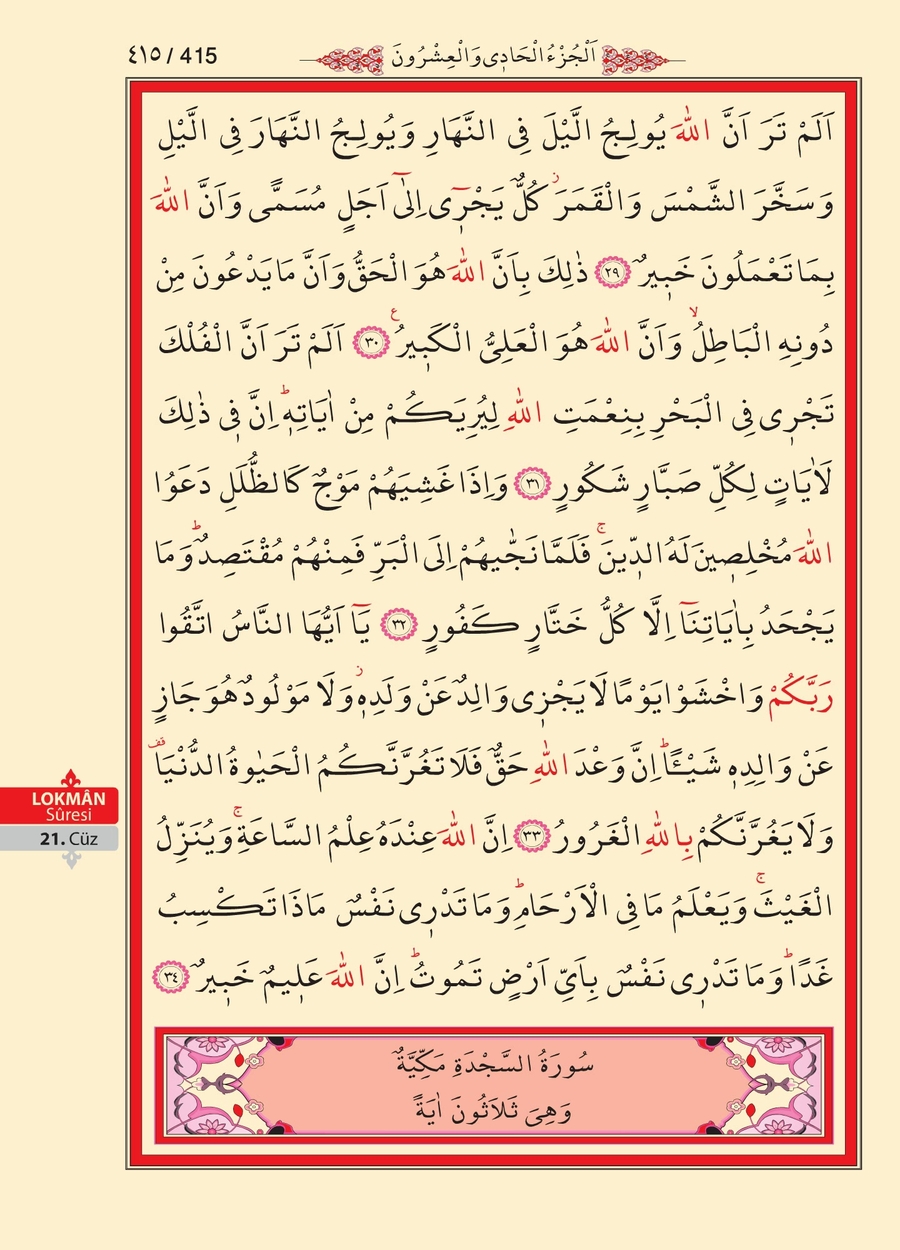 ٤١٥ / 415
اَلْجُزْءُ الْحَادِى وَالْعِشْرُونَ
اَلَمْ تَرَ اَنَّ اللّٰهَ يُولِجُ الَّيْلَ فِى النَّهَارِ وَيُولِجُ النَّهَارَ فِى الَّيْلِ
وَسَخَّرَ الشَّمْسَ وَالْقَمَرَۘ كُلٌّ يَجْر۪ٓى اِلٰٓى اَجَلٍ مُسَمًّى وَاَنَّ اللّٰهَ
بِمَا تَعْمَلُونَ خَب۪يرٌ ﴿٢٩﴾ ذٰلِكَ بِاَنَّ اللّٰهَ هُوَ الْحَقُّ وَاَنَّ مَا يَدْعُونَ مِنْ
دُونِهِ الْبَاطِلُۙ وَاَنَّ اللّٰهَ هُوَ الْعَلِىُّ الْكَب۪يرُ ع ﴿٣٠﴾ اَلَمْ تَرَ اَنَّ الْفُلْكَ
تَجْر۪ى فِى الْبَحْرِ بِنِعْمَتِ اللّٰهِ لِيُرِيَكُمْ مِنْ اٰيَاتِه۪ۜ اِنَّ ف۪ى ذٰلِكَ
لَاٰيَاتٍ لِكُلِّ صَبَّارٍ شَكُورٍ ﴿٣١﴾ وَاِذَا غَشِيَهُمْ مَوْجٌ كَالظُّلَلِ دَعَوُا
اللّٰهَ مُخْلِص۪ينَ لَهُ الدّ۪ينَۚ فَلَمَّا نَجّٰيهُمْ اِلَى الْبَرِّ فَمِنْهُمْ مُقْتَصِدٌۜ وَمَا
يَجْحَدُ بِاٰيَاتِنَٓا اِلَّا كُلُّ خَتَّارٍ كَفُورٍ ﴿٣٢﴾ يَٓا اَيُّهَا النَّاسُ اتَّقُوا
رَبَّكُمْ وَاخْشَوْا يَوْمًا لَا يَجْز۪ى وَالِدٌ عَنْ وَلَدِه۪ۘ وَلَا مَوْلُودٌ هُوَ جَازٍ
عَنْ وَالِدِه۪ شَيْـًٔاۜ اِنَّ وَعْدَ اللّٰهِ حَقٌّ فَلَا تَغُرَّنَّكُمُ الْحَيٰوةُ الدُّنْيَا۠ قف
وَلَا يَغُرَّنَّكُمْ بِاللّٰهِ الْغَرُورُ ﴿٣٣﴾ اِنَّ اللّٰهَ عِنْدَهُ عِلْمُ السَّاعَةِۚ وَيُنَزِّلُ
الْغَيْثَۚ وَيَعْلَمُ مَا فِى الْاَرْحَامِۜ وَمَا تَدْر۪ى نَفْسٌ مَاذَا تَكْسِبُ
غَدًاۜ وَمَا تَدْر۪ى نَفْسٌ بِاَىِّ اَرْضٍ تَمُوتُۜ اِنَّ اللّٰهَ عَل۪يمٌ خَب۪يرٌ ﴿٣٤﴾
LOKMÂN
Sûresi
21. Cüz
سُورَةُ السَّجْدَةِ مَكِّيَّةٌ
وَهِىَ ثَلَاثُونَ اٰيَةً